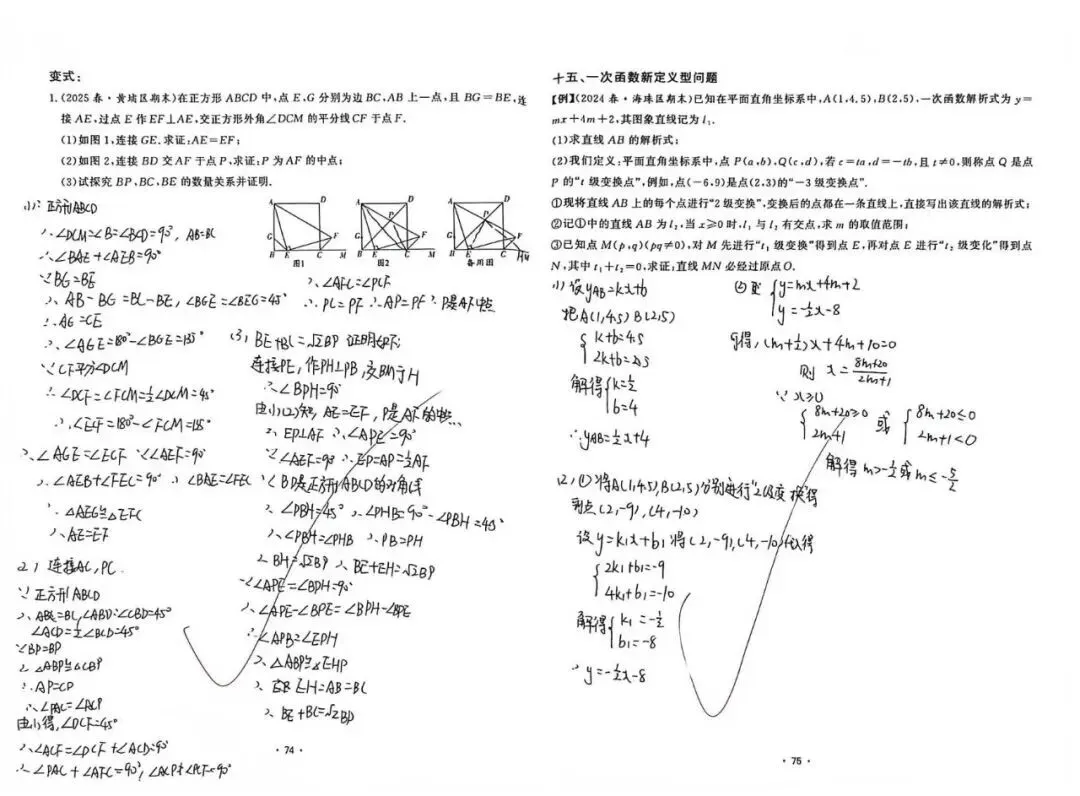 变式：
1.(2025春·黄埔区期末)在正方形ABCD中,点E、G分别为边BC、AB上一点,且BG=BE,连
接AE,过点E作EF⊥AE,交正方形外角∠DCM的平分线CF于点F.
(1)如图1,连接GE.求证:AE=EF;
(2)如图2,连接BD交AF于点P,求证:P为AF的中点;
(3)试探究BP、BC、BE的数量关系并证明.
A D G F B E C M 图1
A D P G F B E C M 图2
A D P G F B E C M H 备用图
(1)∵正方形ABCD
∴∠DCM=∠B=∠BCD=90°, AB=BC
∴∠BAE+∠AEB=90°
∵BG=BE
∴AB-BG=BC-BE, ∠BGE=∠BEG=45°
∴AG=CE
∴∠AGE=180°-∠BGE=135°
∵CF平分∠DCM
∴∠DCF=∠FCM=½∠DCM=45°
∴∠ECF=180°-∠FCM=135°
∴∠AGE=∠ECF ∵∠AEF=90°
∴∠AEB+∠FEC=90° ∴∠BAE=∠FEC
∴△AEG≌△EFC
∴AE=EF
(2) 连接AC, PC
∵正方形ABCD
∴AB=BC, ∠ABD=∠CBD=45°
∠ACD=½∠BCD=45°
∵BP=BP
∴△ABP≌△CBP
∴AP=CP
∴∠PAC=∠ACP
由(1)得, ∠DCF=45°
∴∠ACF=∠DCF+∠ACD=90°
∴∠PAC+∠AFC=90°, ∠ACP+∠PCF=90°
∴∠AFC=∠PCF
∴PC=PF ∴AP=PF ∴P是AF中点
(3) BE+BC=√2BP 证明如下:
连接PE, 作PH⊥PB, 交BM于H
∴∠BPH=90°
由(1)(2)知, AE=EF, P是AF的中点
∴EP⊥AF ∴∠APE=90°
∵∠AEF=90° ∴EP=AP=½AF
∵BD是正方形ABCD的对角线
∴∠PBH=45° ∴∠PHB=90°-∠PBH=45°
∴∠PBH=∠PHB ∴PB=PH
∴BH=√2BP ∴BE+EH=√2BP
∵∠APE=∠BPH=90°
∴∠APE-∠BPE=∠BPH-∠BPE
∴∠APB=∠EPH
∴△ABP≌△EHP
∴EH=AB=BC
∴BE+BC=√2BP
·74·
十五、一次函数新定义型问题
【例】(2024春·海珠区期末)已知在平面直角坐标系中,A(1,4.5),B(2,5).一次函数解析式为y=
mx+4m+2,其图象直线记为l₁.
(1)求直线AB的解析式;
(2)我们定义:平面直角坐标系中,点P(a,b),Q(c,d),若c=ta,d=-tb,且t≠0,则称点Q是点
P的“t级变换点”,例如,点(-6,9)是点(2,3)的“-3级变换点”.
①现将直线AB上的每个点进行“2级变换”,变换后的点都在一条直线上,直接写出该直线的解析式;
②记①中的直线AB为l₂,当x≥0时,l₁与l₂有交点,求m的取值范围;
③已知点M(p,q)(pq≠0),对M先进行“t₁级变换”得到点E,再对点E进行“t₂级变化”得到点
N,其中t₁+t₂=0,求证:直线MN必经过原点O.
(1) 设yAB=kx+b
把A(1,4.5) B(2,5)
{k+b=4.5
2k+b=5
解得{k=½
b=4
∴yAB=½x+4
(2) ① 将A(1,4.5), B(2,5)分别进行“2级变换”得
到点(2,-9), (4,-10)
设y=k₁x+b₁ 将(2,-9), (4,-10)代入得
{2k₁+b₁=-9
4k₁+b₁=-10
解得{k₁=-½
b₁=-8
∴y=-½x-8
② {y=mx+4m+2
y=-½x-8
得, (m+½)x+4m+10=0
则 x=8m+20/2m+1
∵x≥0
{8m+20≥0 或 {8m+20≤0
2m+1 2m+1<0
解得m>-½或m≤-5/2
·75·